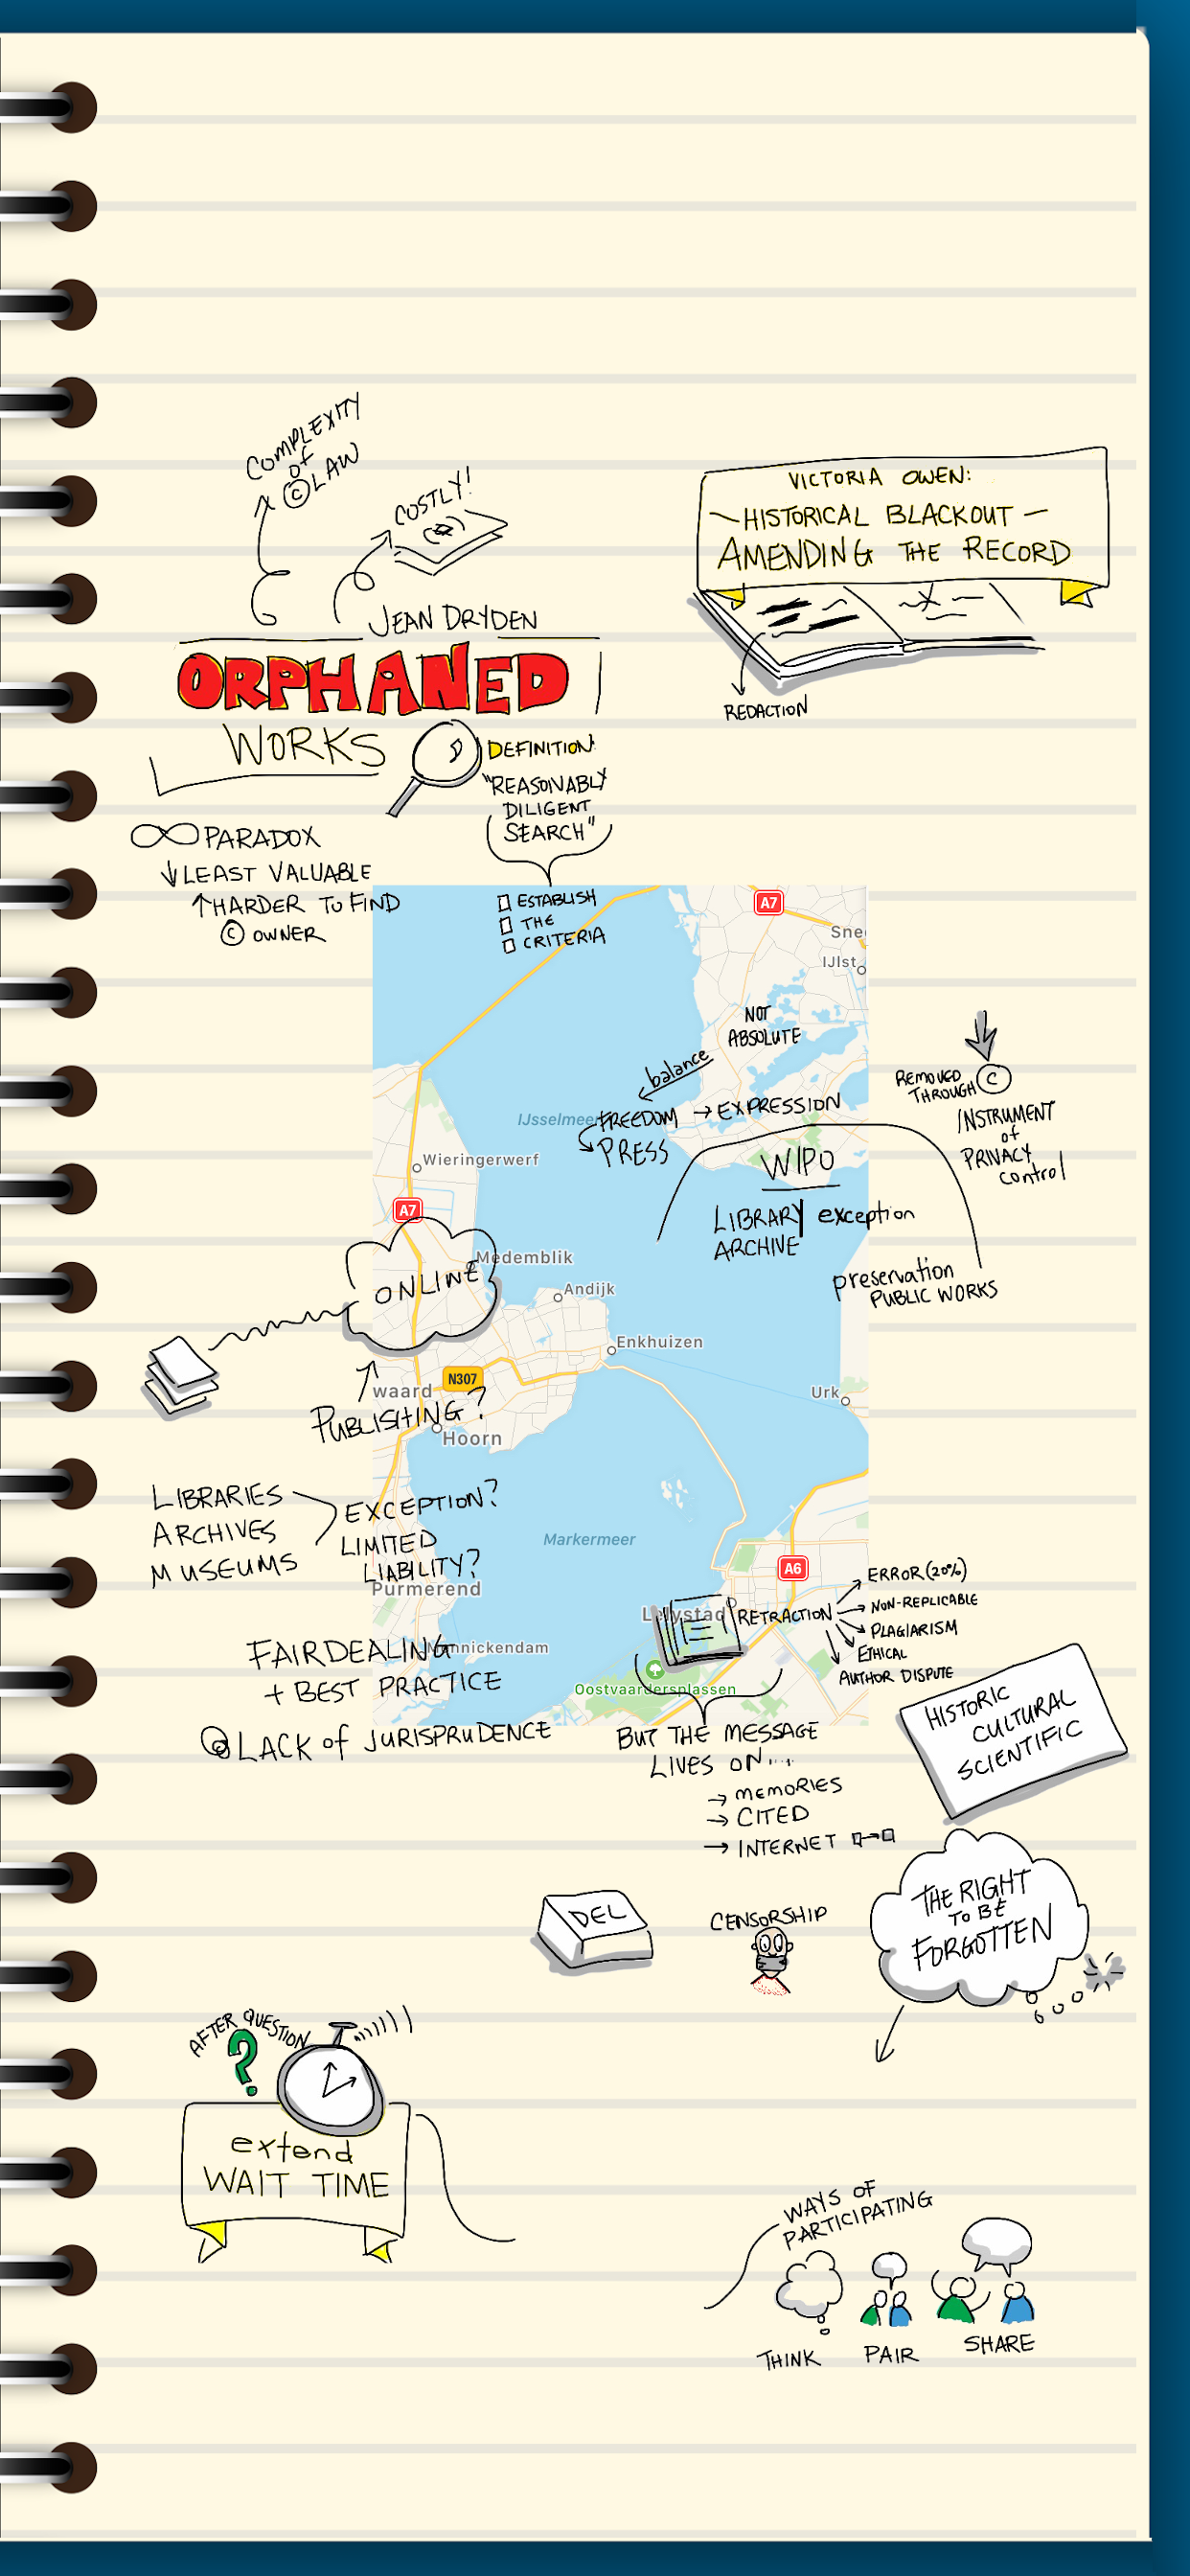 COMPLEXITY
of
© LAW
COSTLY!
JEAN DRYDEN
ORPHANED
WORKS
DEFINITION:
"REASONABLY
DILIGENT
SEARCH"
ESTABLISH
THE
CRITERIA
PARADOX
↓ LEAST VALUABLE
↑ HARDER TO FIND
© OWNER
VICTORIA OWEN:
— HISTORICAL BLACKOUT —
AMENDING THE RECORD
REDACTION
A7
Sne
IJlst
NOT
ABSOLUTE
balance
IJsselmeer
FREEDOM → EXPRESSION
PRESS
REMOVED
THROUGH ©
INSTRUMENT
of
PRIVACY
control
WIPO
LIBRARY exception
ARCHIVE
preservation
PUBLIC WORKS
Wieringerwerf
A7
Medemblik
ONLINE
Andijk
Enkhuizen
N307
waard
PUBLISHING?
Hoorn
Urk
LIBRARIES
ARCHIVES
MUSEUMS
EXCEPTION?
LIMITED
LIABILITY?
Markermeer
Purmerend
A6
Lelystad
RETRACTION
ERROR (20%)
NON-REPLICABLE
PLAGIARISM
ETHICAL
AUTHOR DISPUTE
FAIR DEALING
+ BEST PRACTICE
nnickendam
Oostvaardersplassen
LACK of JURISPRUDENCE
BUT THE MESSAGE
LIVES ON....
→ MEMORIES
→ CITED
→ INTERNET
HISTORIC
CULTURAL
SCIENTIFIC
THE RIGHT
TO BE
FORGOTTEN
DEL
CENSORSHIP
AFTER QUESTION
?
extend
WAIT TIME
WAYS OF
PARTICIPATING
THINK
PAIR
SHARE